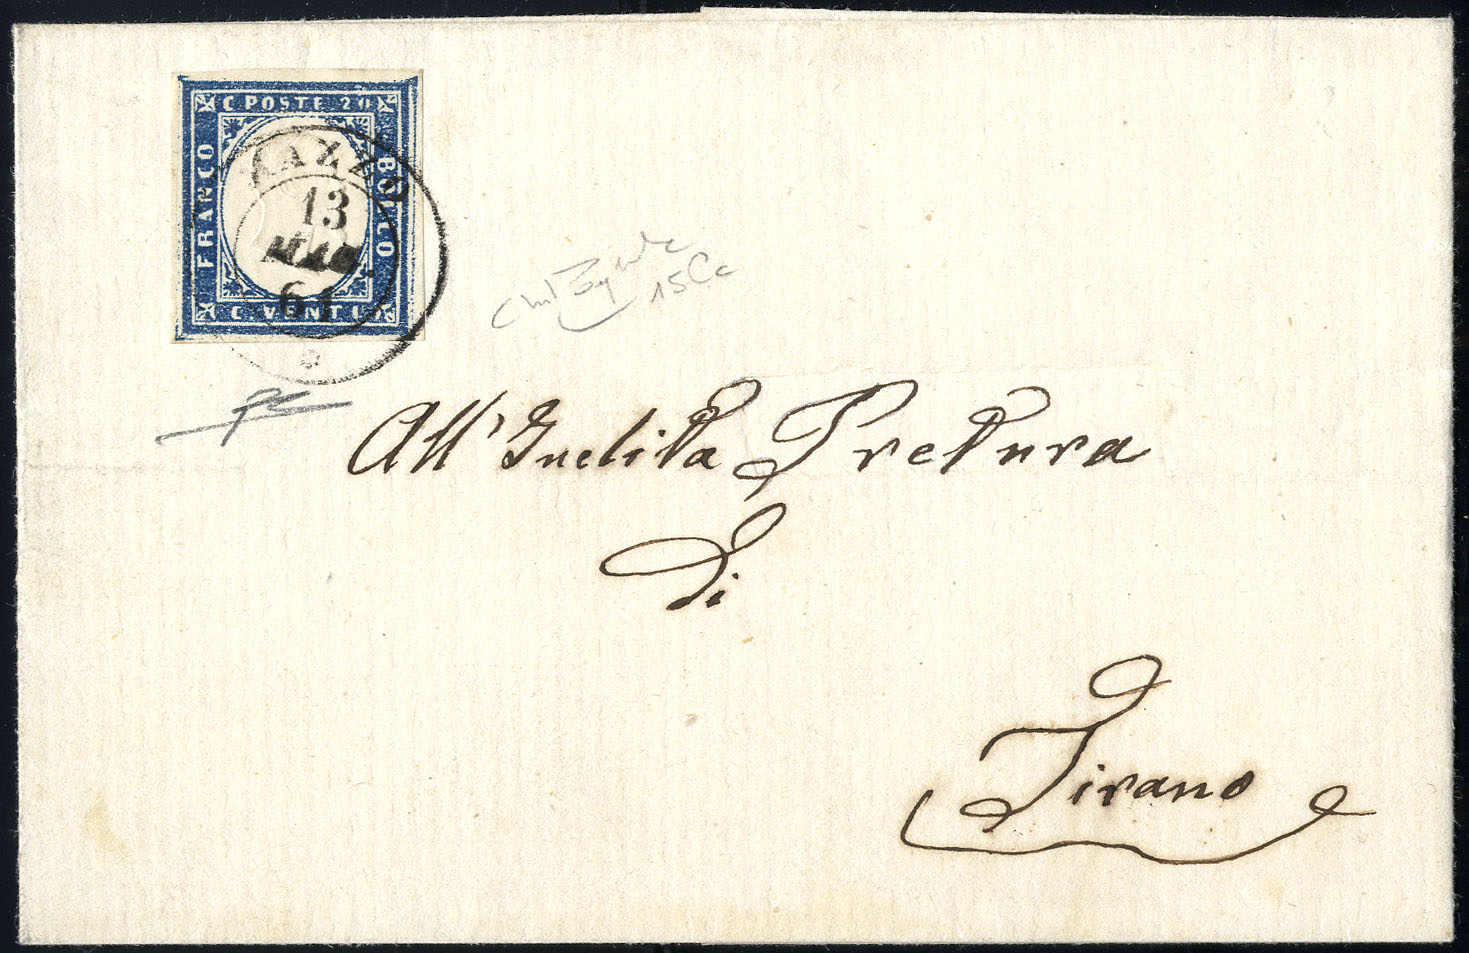 C POSTE 20
FRANCO
BOLLO
C. VENTI
MAZZO
13
MAR.
61
15Cc
All'Inclita Pretura
di
Tirano